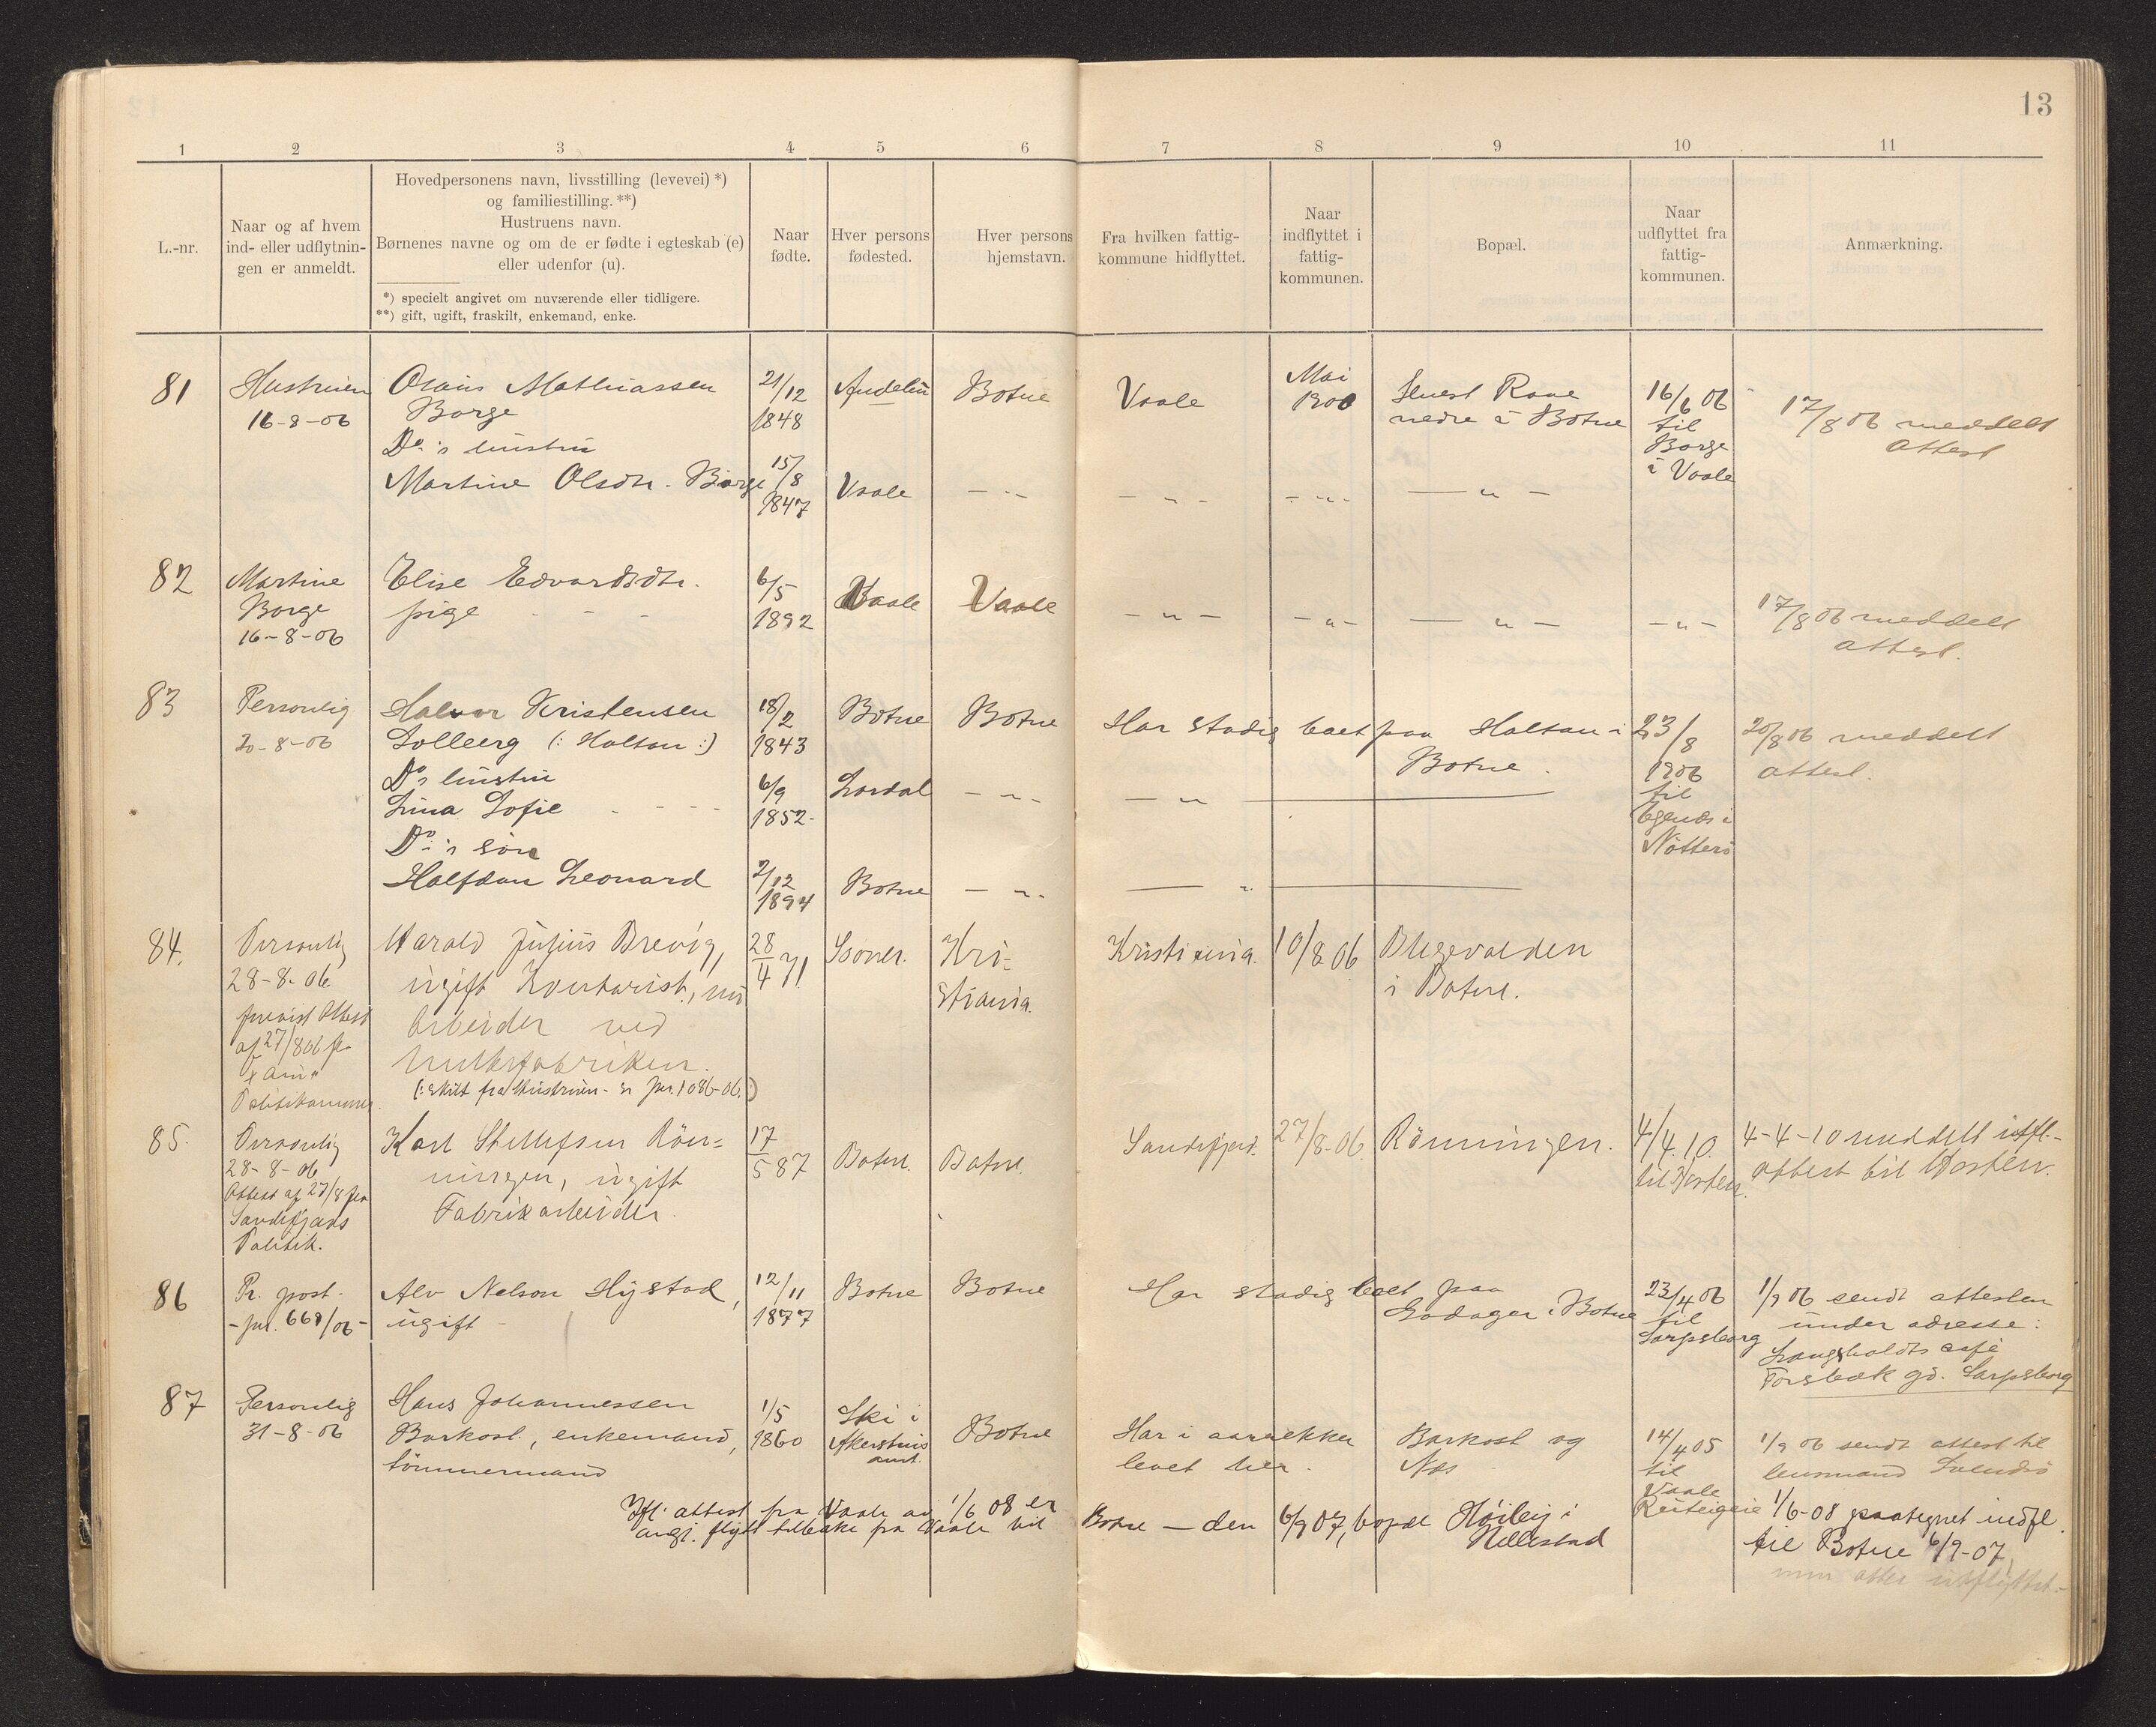 13
1 2 3 4 5 6 7 8 9 10 11
L.-nr.
Naar og af hvem
ind- eller udflytnin-
gen er anmeldt.
Hovedpersonens navn, livsstilling (levevei) *)
og familiestilling. **)
Hustruens navn.
Børnenes navne og om de er fødte i egteskab (e)
eller udenfor (u).
*) specielt angivet om nuværende eller tidligere.
**) gift, ugift, fraskilt, enkemand, enke.
Naar
fødte.
Hver persons
fødested.
Hver persons
hjemstavn.
Fra hvilken fattig-
kommune hidflyttet.
Naar
indflyttet i
fattig-
kommunen.
Bopæl.
Naar
udflyttet fra
fattig-
kommunen.
Anmærkning.
81
Hustruen
16-8-06
Olaus Mathiassen
Borge
Do's hustru
Martine Olsdtr. Borge
21/12
1848
15/8
1847
Andebu
Vaale
Botne
— " -
Vaale
- " -
Mai
1900
- " -
Raae
nedre i Botne
— " —
16/6 06
til
Borge
i Vaale
17/8 06 meddelt
attest
82
Martine
Borge
16-8-06
Elise Edvardsdtr.
pige - - -
6/5
1892
Vaale
Vaale
— " —
- " -
— " —
- " -
17/8 06 meddelt
attest.
83
Personlig
20-8-06
Halvor Kristensen
Solberg (: Holtan :)
Do's hustru
Lina Sofie - - - -
Do's søn
Halfdan Leonard
18/2
1843
6/9
1852-
2/12
1894
Botne
Lardal
Botne
Botne
— " -
— " -
Har stadig boet paa Holtan i
Botne.
— " —
— " —
23/8
1906
til
i
Nøtterø
20/8 06 meddelt
attest.
84.
Personlig
28-8-06.
forevist Attest
af 27/8 06 fra
Politikammer.
Harald Julius Brevig,
ugift Kontorist, nu
Arbeider ved
fabriken.
(: skilt fra Hustruen - se jnr. 1086-06 :)
28/4 71
Kri-
stiania.
Kristiania.
10/8 06
i Botne.
85.
Personlig
28-8-06
Attest af 27/8 fra
Sandefjords
Politik.
Karl Stillefsen Røn-
ningen, ugift
Fabrikarbeider.
17/5 87
Botne.
Botne.
Sandefjord.
27/8-06.
Rønningen.
4/4. 10.
til Horten.
4-4-10 meddelt utfl.-
attest til Horten.
86
Pr. post-
- jnr. 668/06 -
Alv Nelson Hystad,
ugift -
12/11
1877
Botne
Botne
Har stadig boet paa
Godager i Botne
23/4 06
til
Sarpsborg
1/9 06 sendt attesten
under adresse:
Langholdts cafe
Forsbæk gd. Sarpsborg
87
Personlig
31-8-06
Hans Johannessen
Barkost, enkemand,
tømmermand
1/5
1860
Ski i
Akershus
amt.
Botne
Har i aarrekker
levet her.
Barkost og
Næs
14/4 05
til
Vaale
1/9 06 sendt attest til
lensmand
Ifl. attest fra Vaale av 1/6 08 er
angj. flyttt tilbake fra Vaale til Botne — den 6/9 07, bopæl Høibøj i
Hillestad
1/6-08 paategnet indfl.
til Botne 6/9-07,
men atter utflyttet-